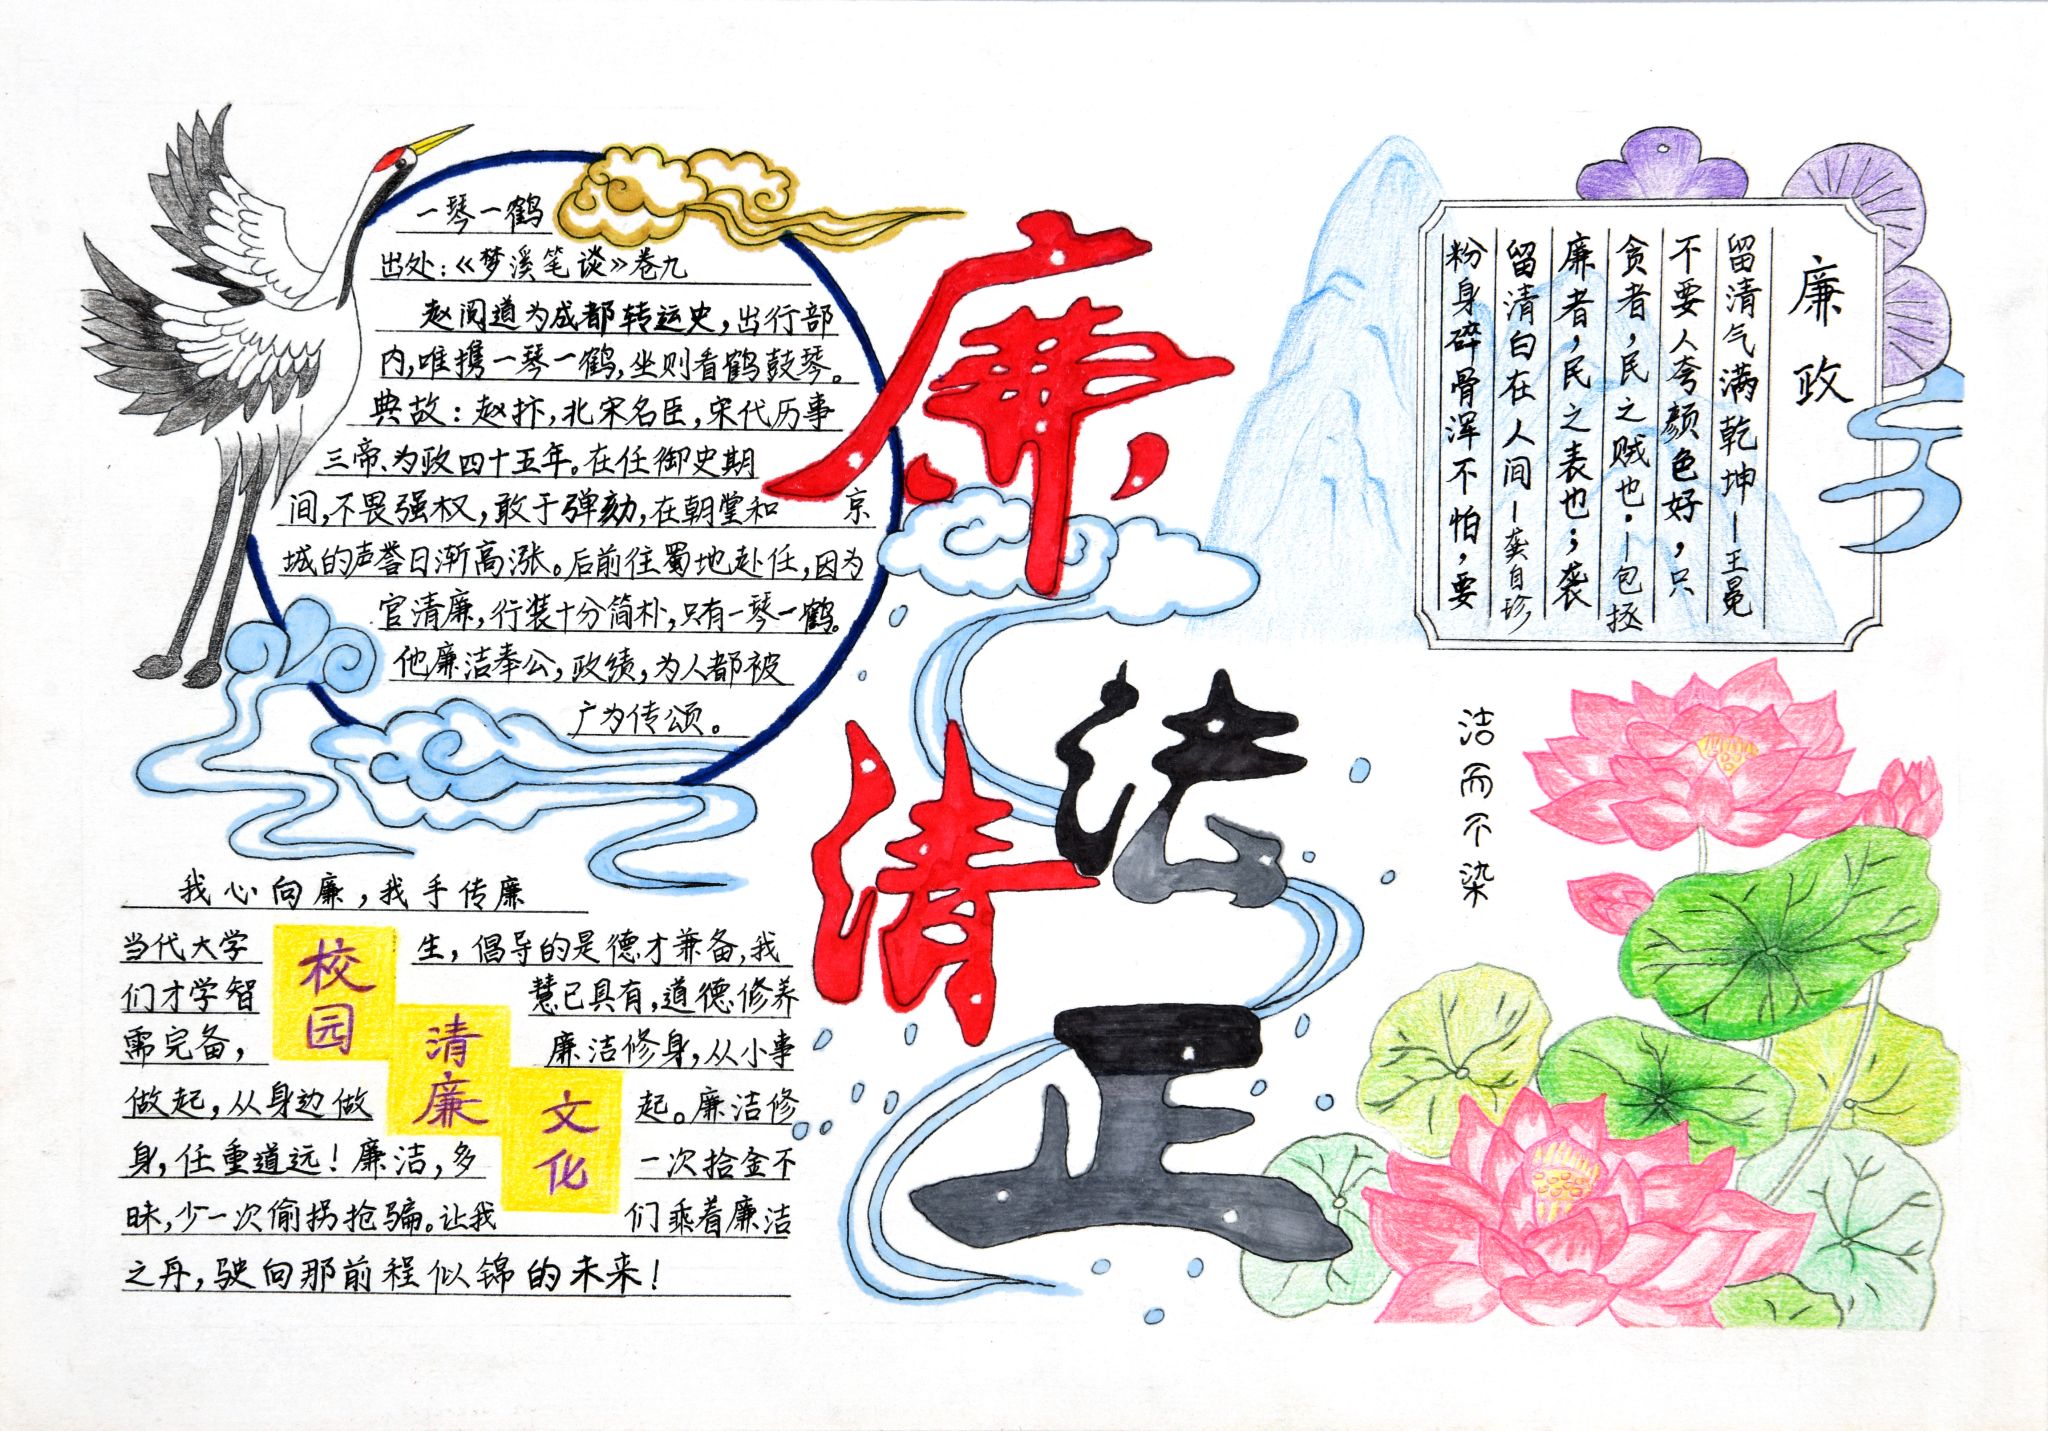 一琴一鹤
出处：《梦溪笔谈》卷九
赵阅道为成都转运史，出行部
内，唯携一琴一鹤，坐则看鹤鼓琴。
典故：赵抃，北宋名臣，宋代历事
三帝、为政四十五年。在任御史期
间，不畏强权，敢于弹劾，在朝堂和 京
城的声誉日渐高涨。后前往蜀地赴任，因为
官清廉，行装十分简朴，只有一琴一鹤。
他廉洁奉公，政绩，为人都被
广为传颂。
廉清
法正
廉政
留清气满乾坤—王冕
不要人夸颜色好，只
贪者，民之贼也.—包拯
廉者，民之表也；袭
留清白在人间—龚自珍
粉身碎骨浑不怕，要
洁而不染
我心向廉，我手传廉
当代大学生，倡导的是德才兼备，我
们才学智慧已具有，道德修养
需完备，廉洁修身，从小事
做起，从身边做起。廉洁修
身，任重道远！廉洁，多一次拾金不
昧，少一次偷拐抢骗。让我们乘着廉洁
之丹，驶向那前程似锦的未来！
校园
清廉
文化